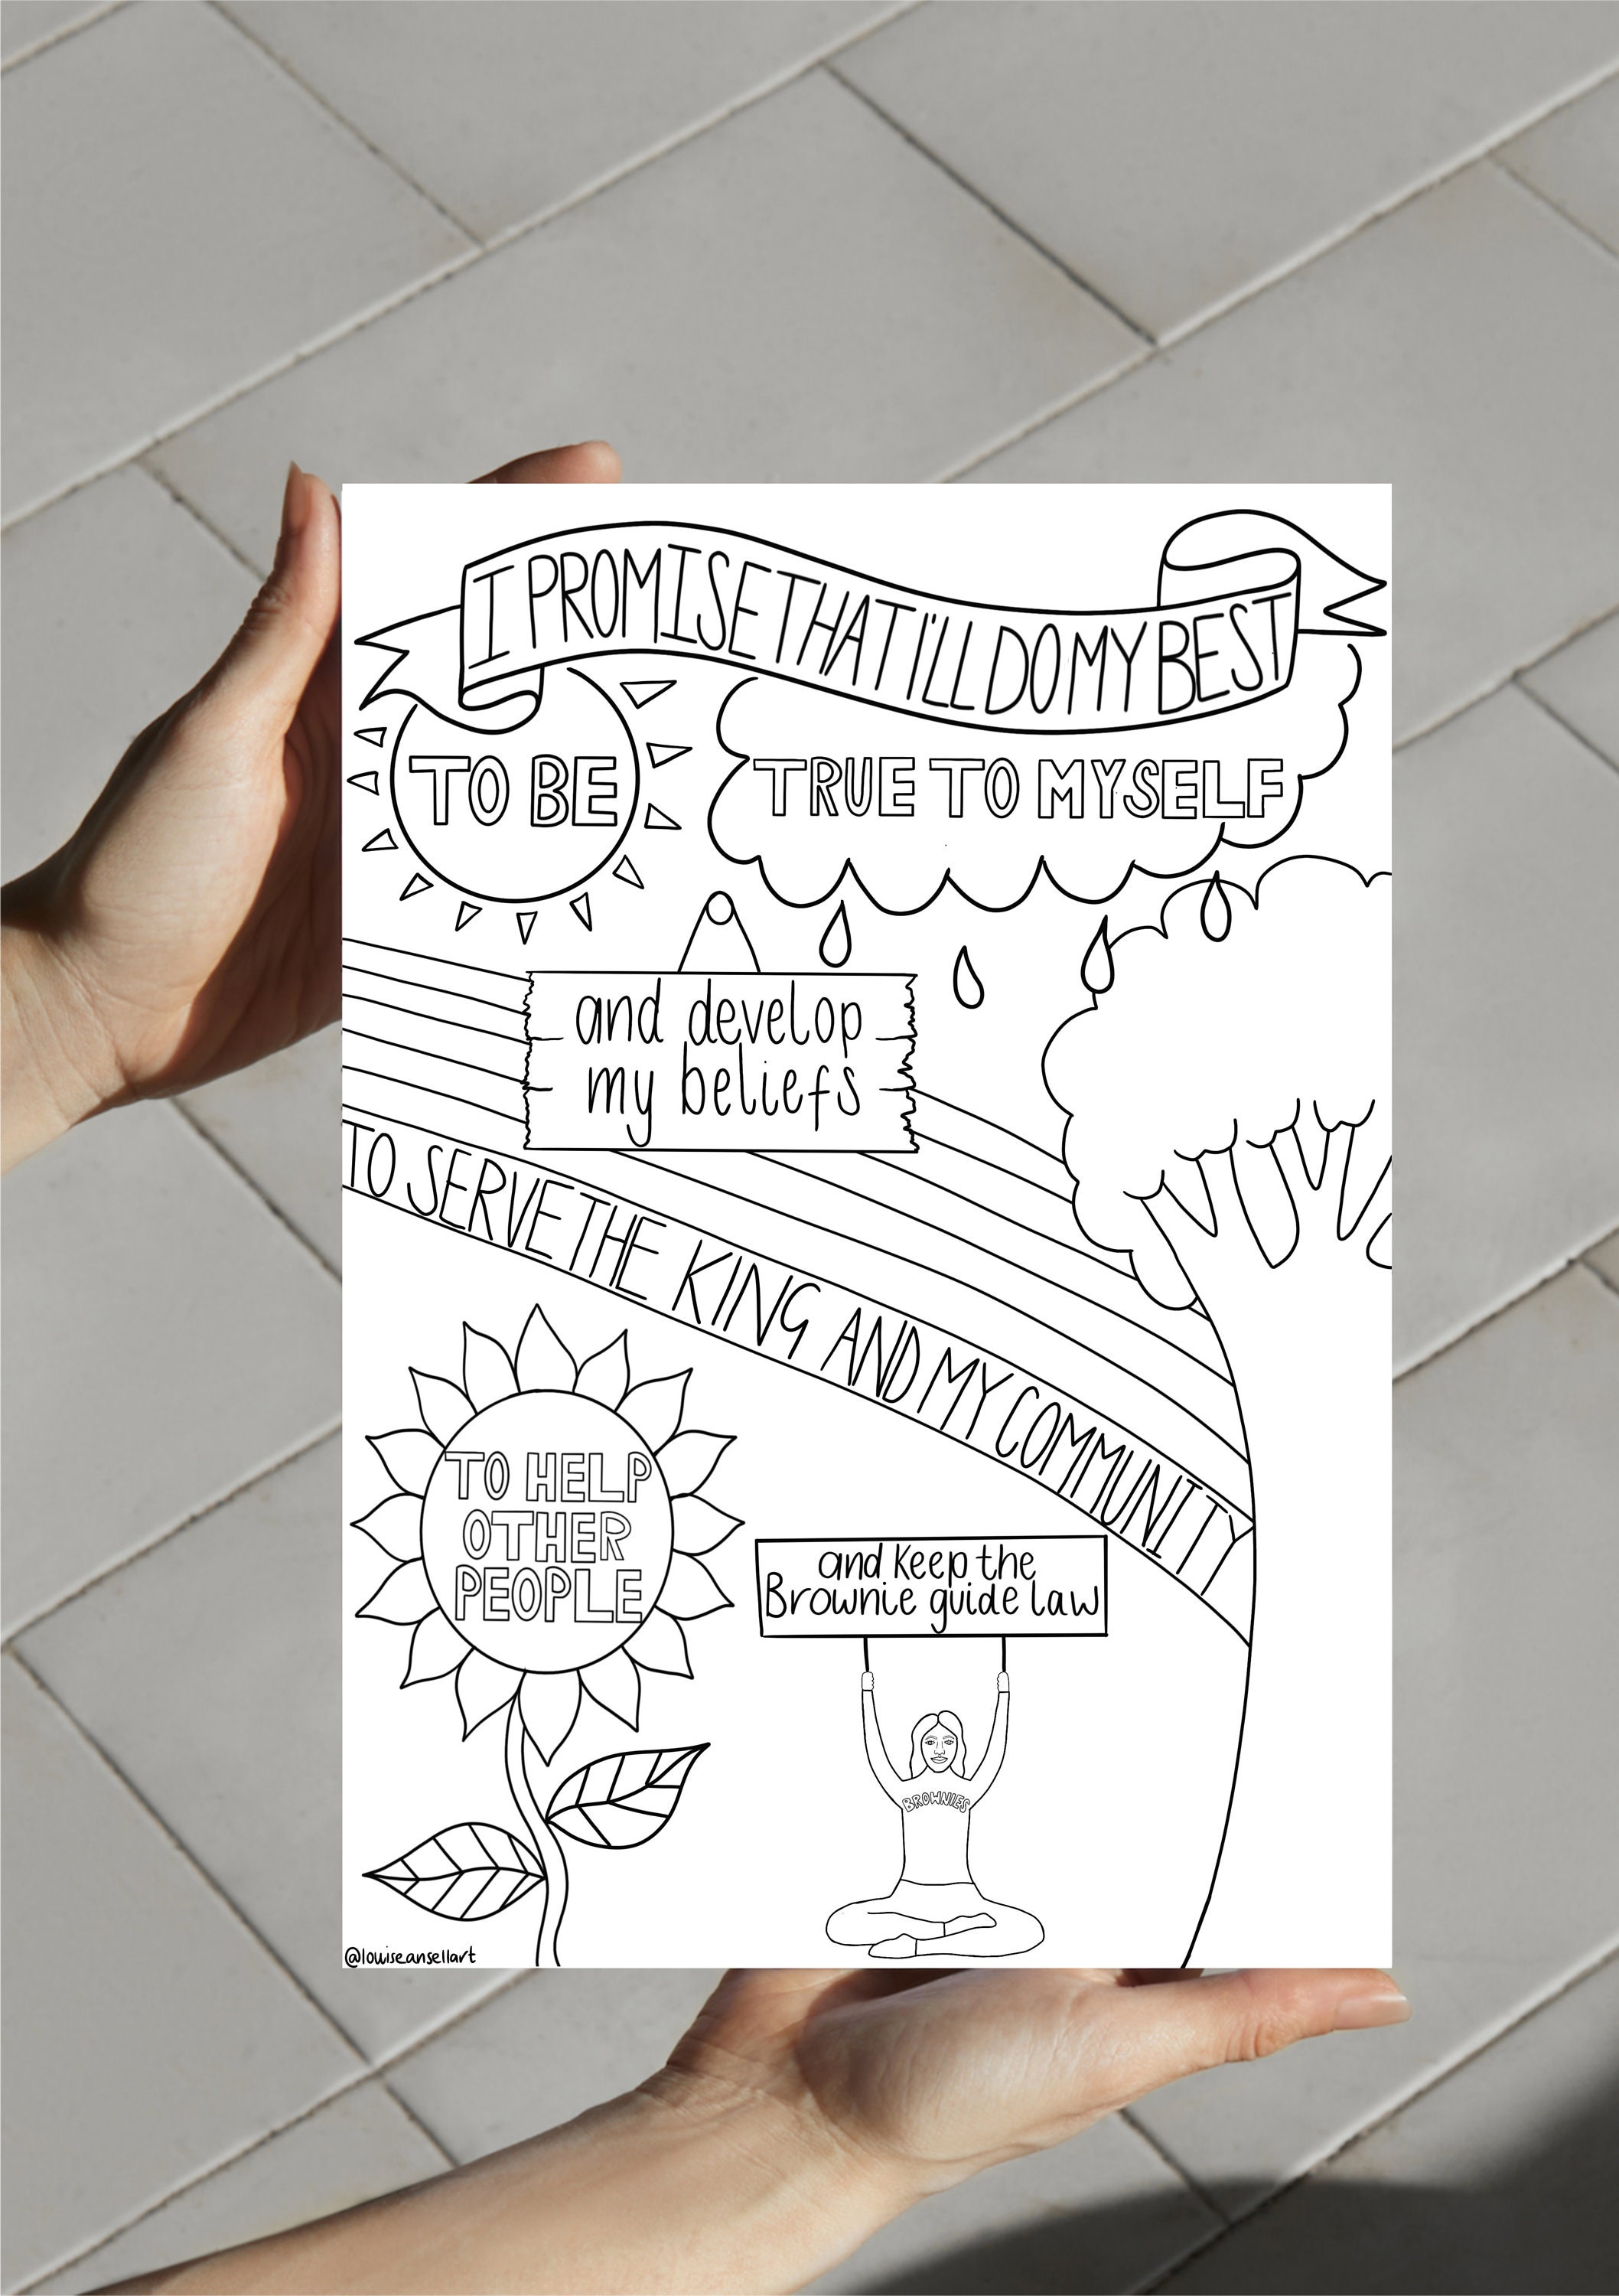 I PROMISE THAT I'LL DO MY BEST
TO BE
TRUE TO MYSELF
and develop
my beliefs
TO SERVE THE KING AND MY COMMUNITY
TO HELP
OTHER
PEOPLE
and keep the
Brownie guide law
BROWNIES
@louiseansellart